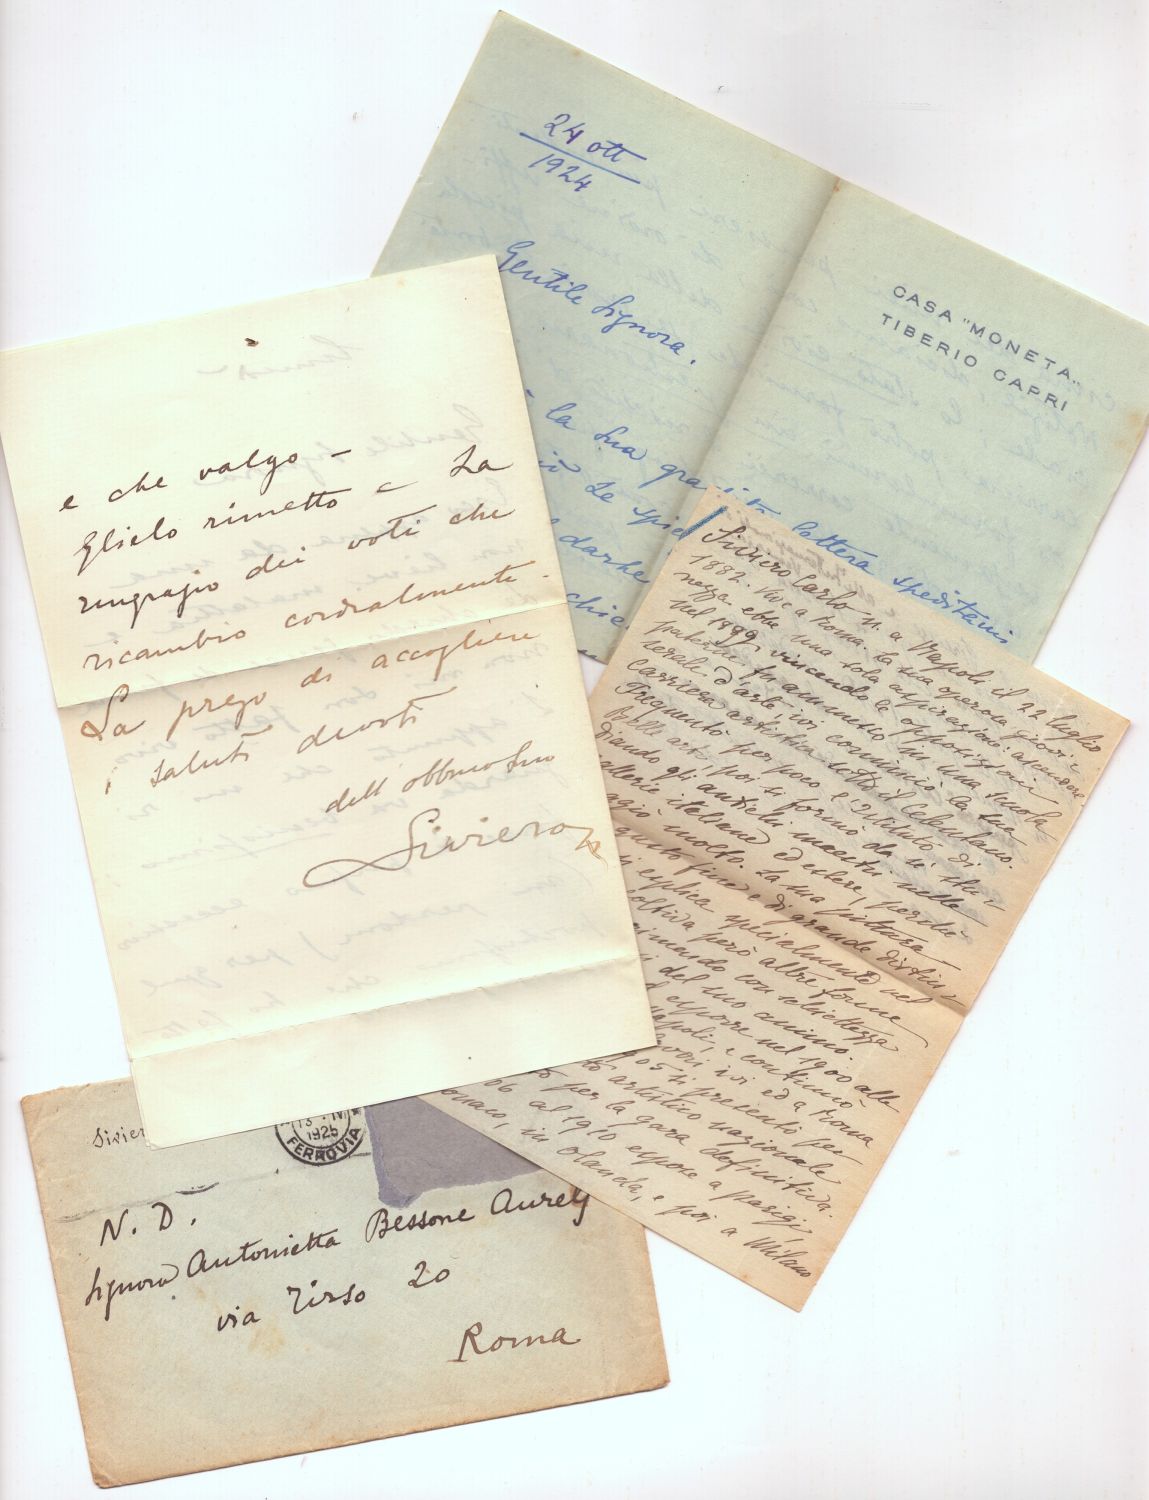 24 ott
1924
Gentile Signora.
la sua gra
lettera speditami
Le spie
darhe
chie
CASA "MONETA"
TIBERIO CAPRI
e che valgo -
Glielo rimetto e La
ringrazio dei voti che
ricambio cordialmente.
La prego di accogliere
i saluti devoti
dell'obbmo Suo
Siviero
Siviero Carlo n. a Napoli il 22 luglio
1882. Vive a Roma. La sua operosa giovi-
nezza ebbe una sola aspirazione: ascendere.
Nel 1899, vincendo le opposizioni
paterne fu ammesso in una scuola
serale d'arte, ivi cominciò la sua
carriera artistica sotto il Cebulano.
Frequentò per poco l'Istituto di
Belle arti, poi si formò da sè stu-
diando gli antichi maestri nelle
allerie italiane ed estere, perchè
agiò molto. La sua pittura
gusto fine e di grande distin-
si esplica specialmente nel
coltiva però altre forme
rimendo con schiettezza
i del suo animo.
d esporre nel 1900 alle
Napoli, e continuò
lavori ivi ed a Roma
05 si presentò per
to artistico nazionale
ò per la gara definitiva.
06 al 1910 espose a Parigi,
onaco, in Olanda, e poi a Milano
Sivier
13 · IV
1925
FERROVIA
N. D.
Signora Antonietta Bessone Aurelj
via Tirso 20
Roma